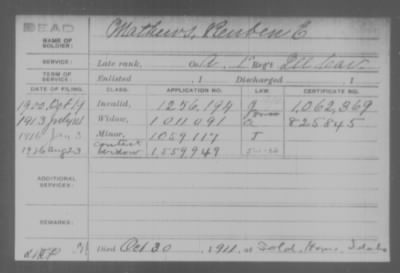 DEAD
NAME OF SOLDIER: Mathews, Reuben E
SERVICE: Late rank, Co. A, 1 Reg't Ill. Cav.
TERM OF SERVICE: Enlisted , 1 Discharged , 1
DATE OF FILING. CLASS. APPLICATION NO. LAW. CERTIFICATE NO.
1900, Oct 19 Invalid, 1256,194 g 1,062,369
1913 July Widow, 1011,091 a 825845
1916 Jan 3 Minor, 1059,117 J
1926 Aug 23 Contest Widow 1559949
ADDITIONAL SERVICES:
REMARKS:
Died Oct. 30, 1911, at Sold. Home, Idaho